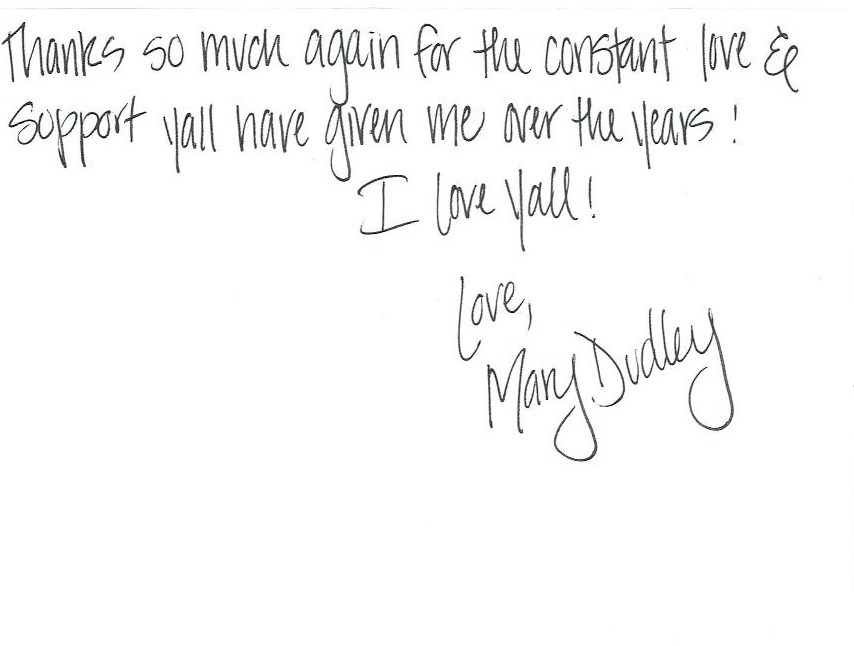 Thanks so much again for the constant love &
support yall have given me over the years!
I love yall!
Love,
Mary Dudley